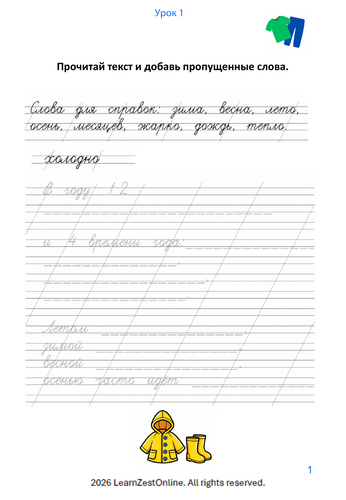 Урок 1
Прочитай текст и добавь пропущенные слова.
Слова для справок: зима, весна, лето,
осень, месяцев, жарко, дождь, тепло,
холодно
В году 12
и 4 времени года:
Летом
зимой
весной
осенью часто идёт
1
2026 LearnZestOnline. All rights reserved.